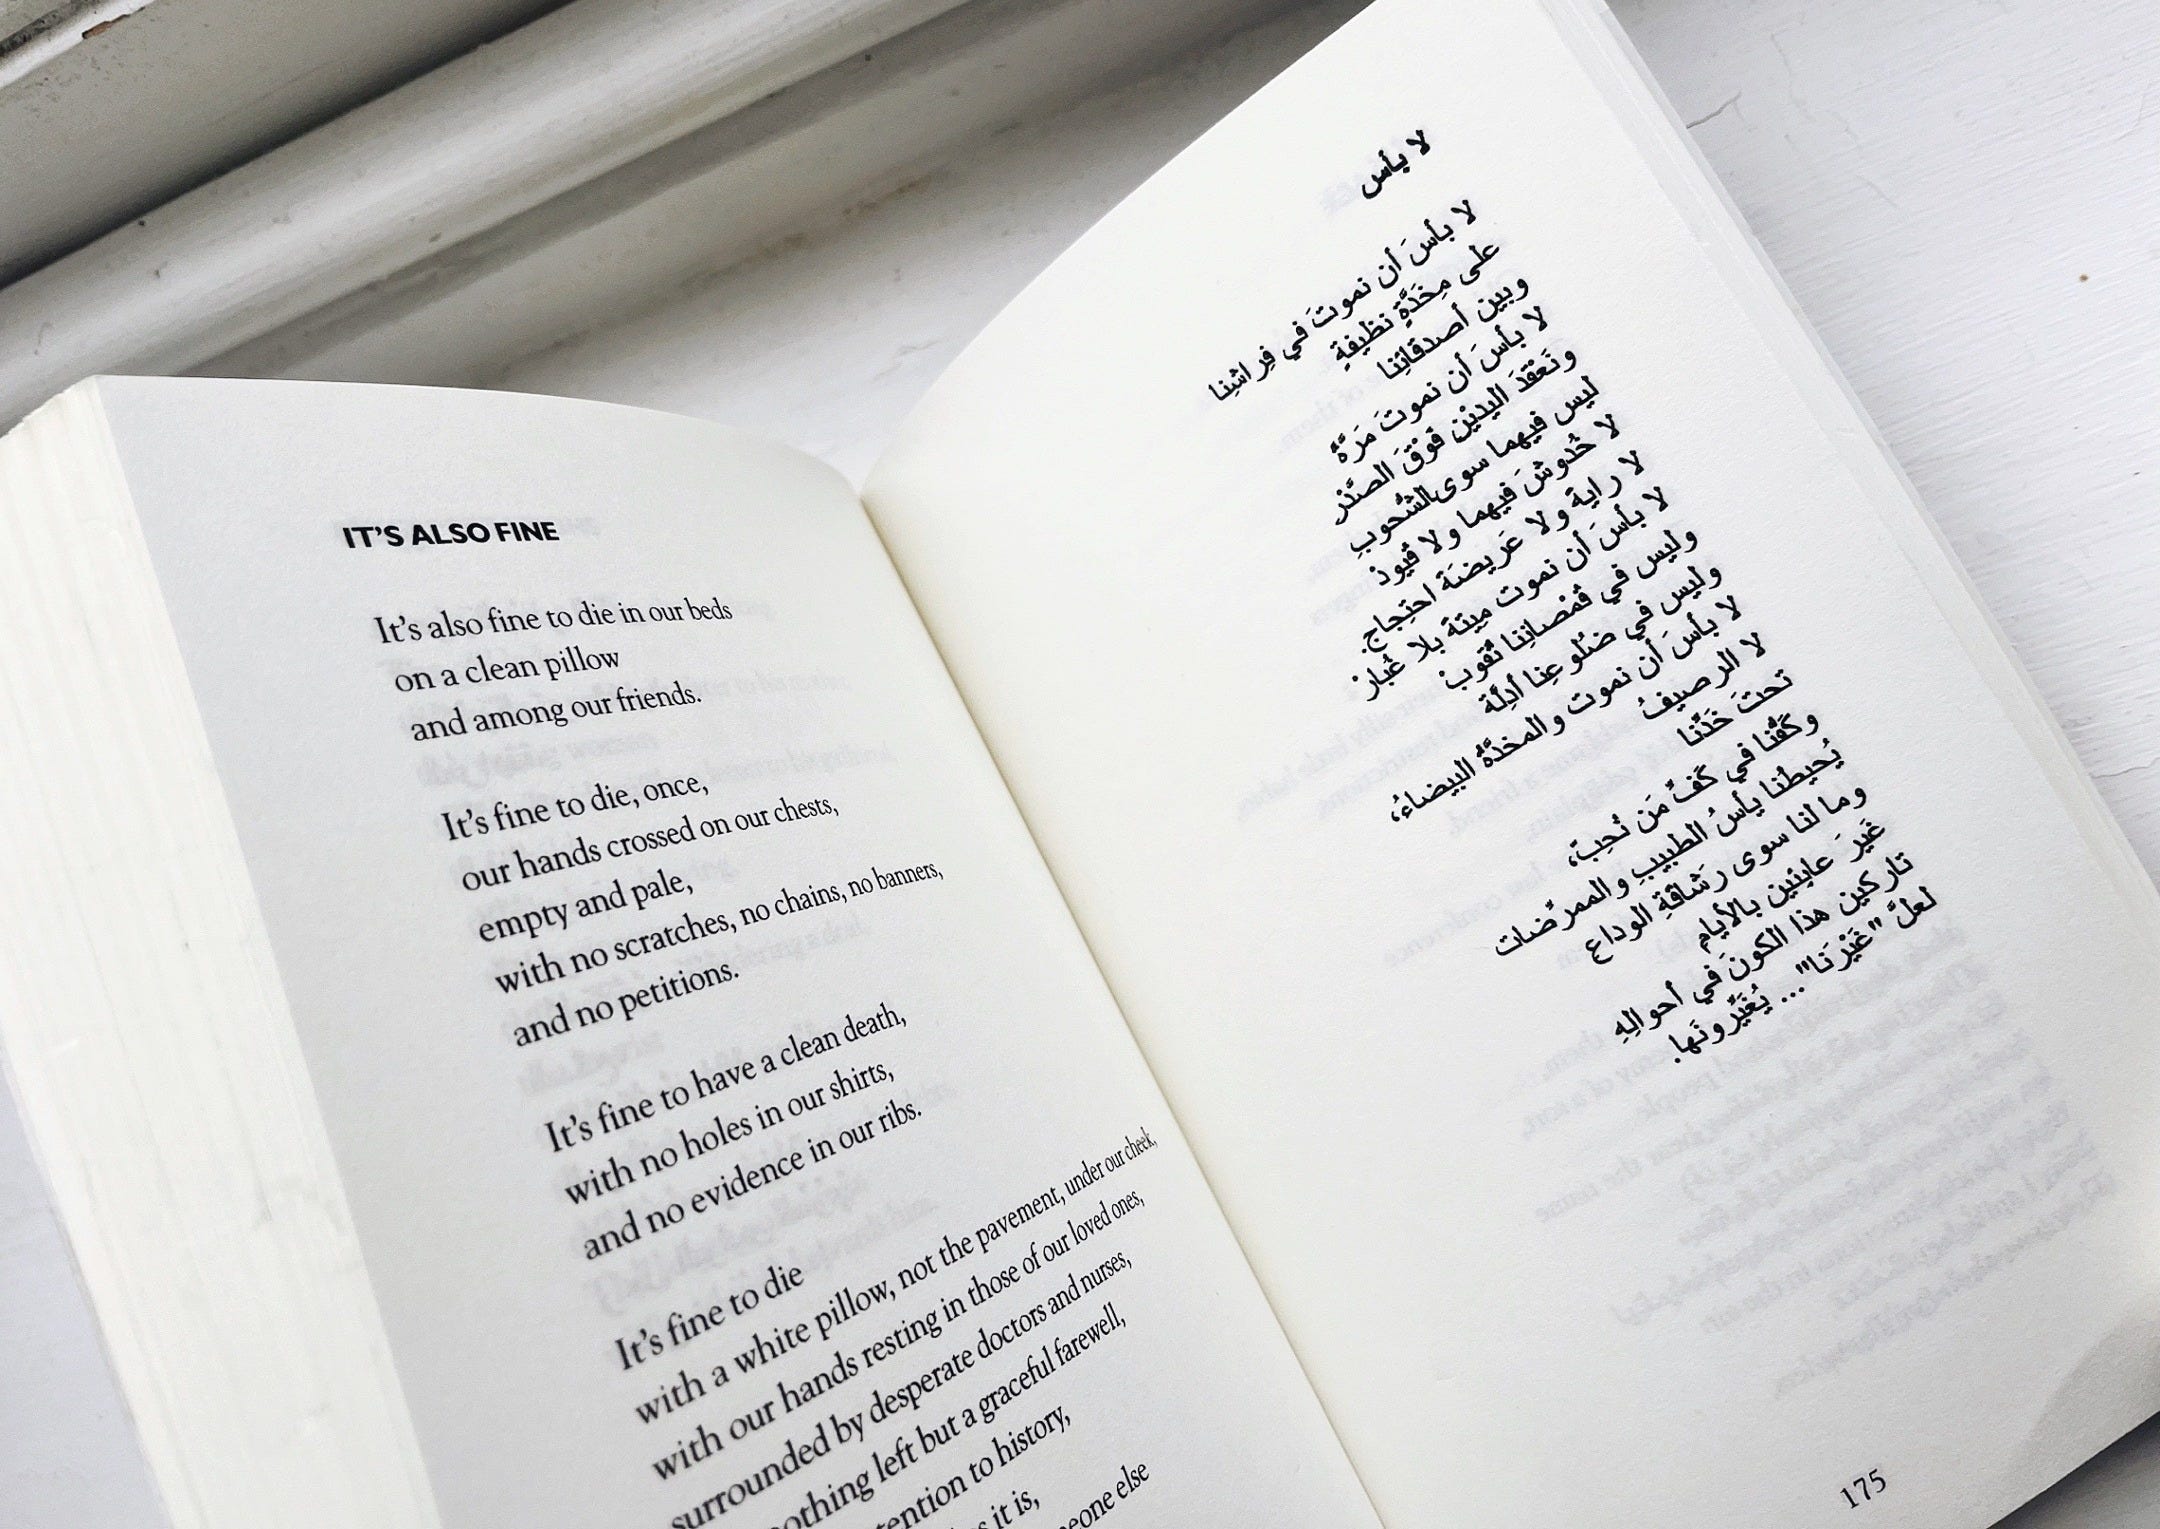 IT'S ALSO FINE
It's also fine to die in our beds
on a clean pillow
and among our friends.
It's fine to die, once,
our hands crossed on our chests,
empty and pale,
with no scratches, no chains, no banners,
and no petitions.
It's fine to have a clean death,
with no holes in our shirts,
and no evidence in our ribs.
It's fine to die
with a white pillow, not the pavement, under our cheek,
with our hands resting in those of our loved ones,
surrounded by desperate doctors and nurses,
nothing left but a graceful farewell,
to history,
it is,
else
لا بأس
لا بأسَ أن نموتَ في فِراشِنا
على مِخَدَّةٍ نظيفةٍ
وبين أصدقائِنا
لا بأسَ أن نموتَ مَرَّةً
ونَعْقدَ اليديْن فَوْقَ الصَّدْر
ليس فيهما سوى الشُحوبِ
لا خُدوشَ فيهما ولا قُيودْ
لا راية ولا عَريضَة احتِجاج.
لا بأسَ أن نموت مِيتةً بلا غُبارْ
وليس في قُمْصانِنا ثُقوبْ
وليس في ضُلوعِنا أدِلَّة
لا بأسَ أن نموت والمخدَّةُ البيضاءُ،
لا الرصيفُ
تحتَ خَدِّنا
وكَفُّنا في كَفِّ مَن نُحِبّ،
يُحيطنا يأسُ الطبيبِ والممرِّضات
وما لنا سوى رَشاقةِ الوداع
غَيرَ عابئين بالأيام
تاركين هذا الكونَ في أحوالِهِ
لعلَّ "غَيْرَنا"... يُغَيِّرونَها.
175